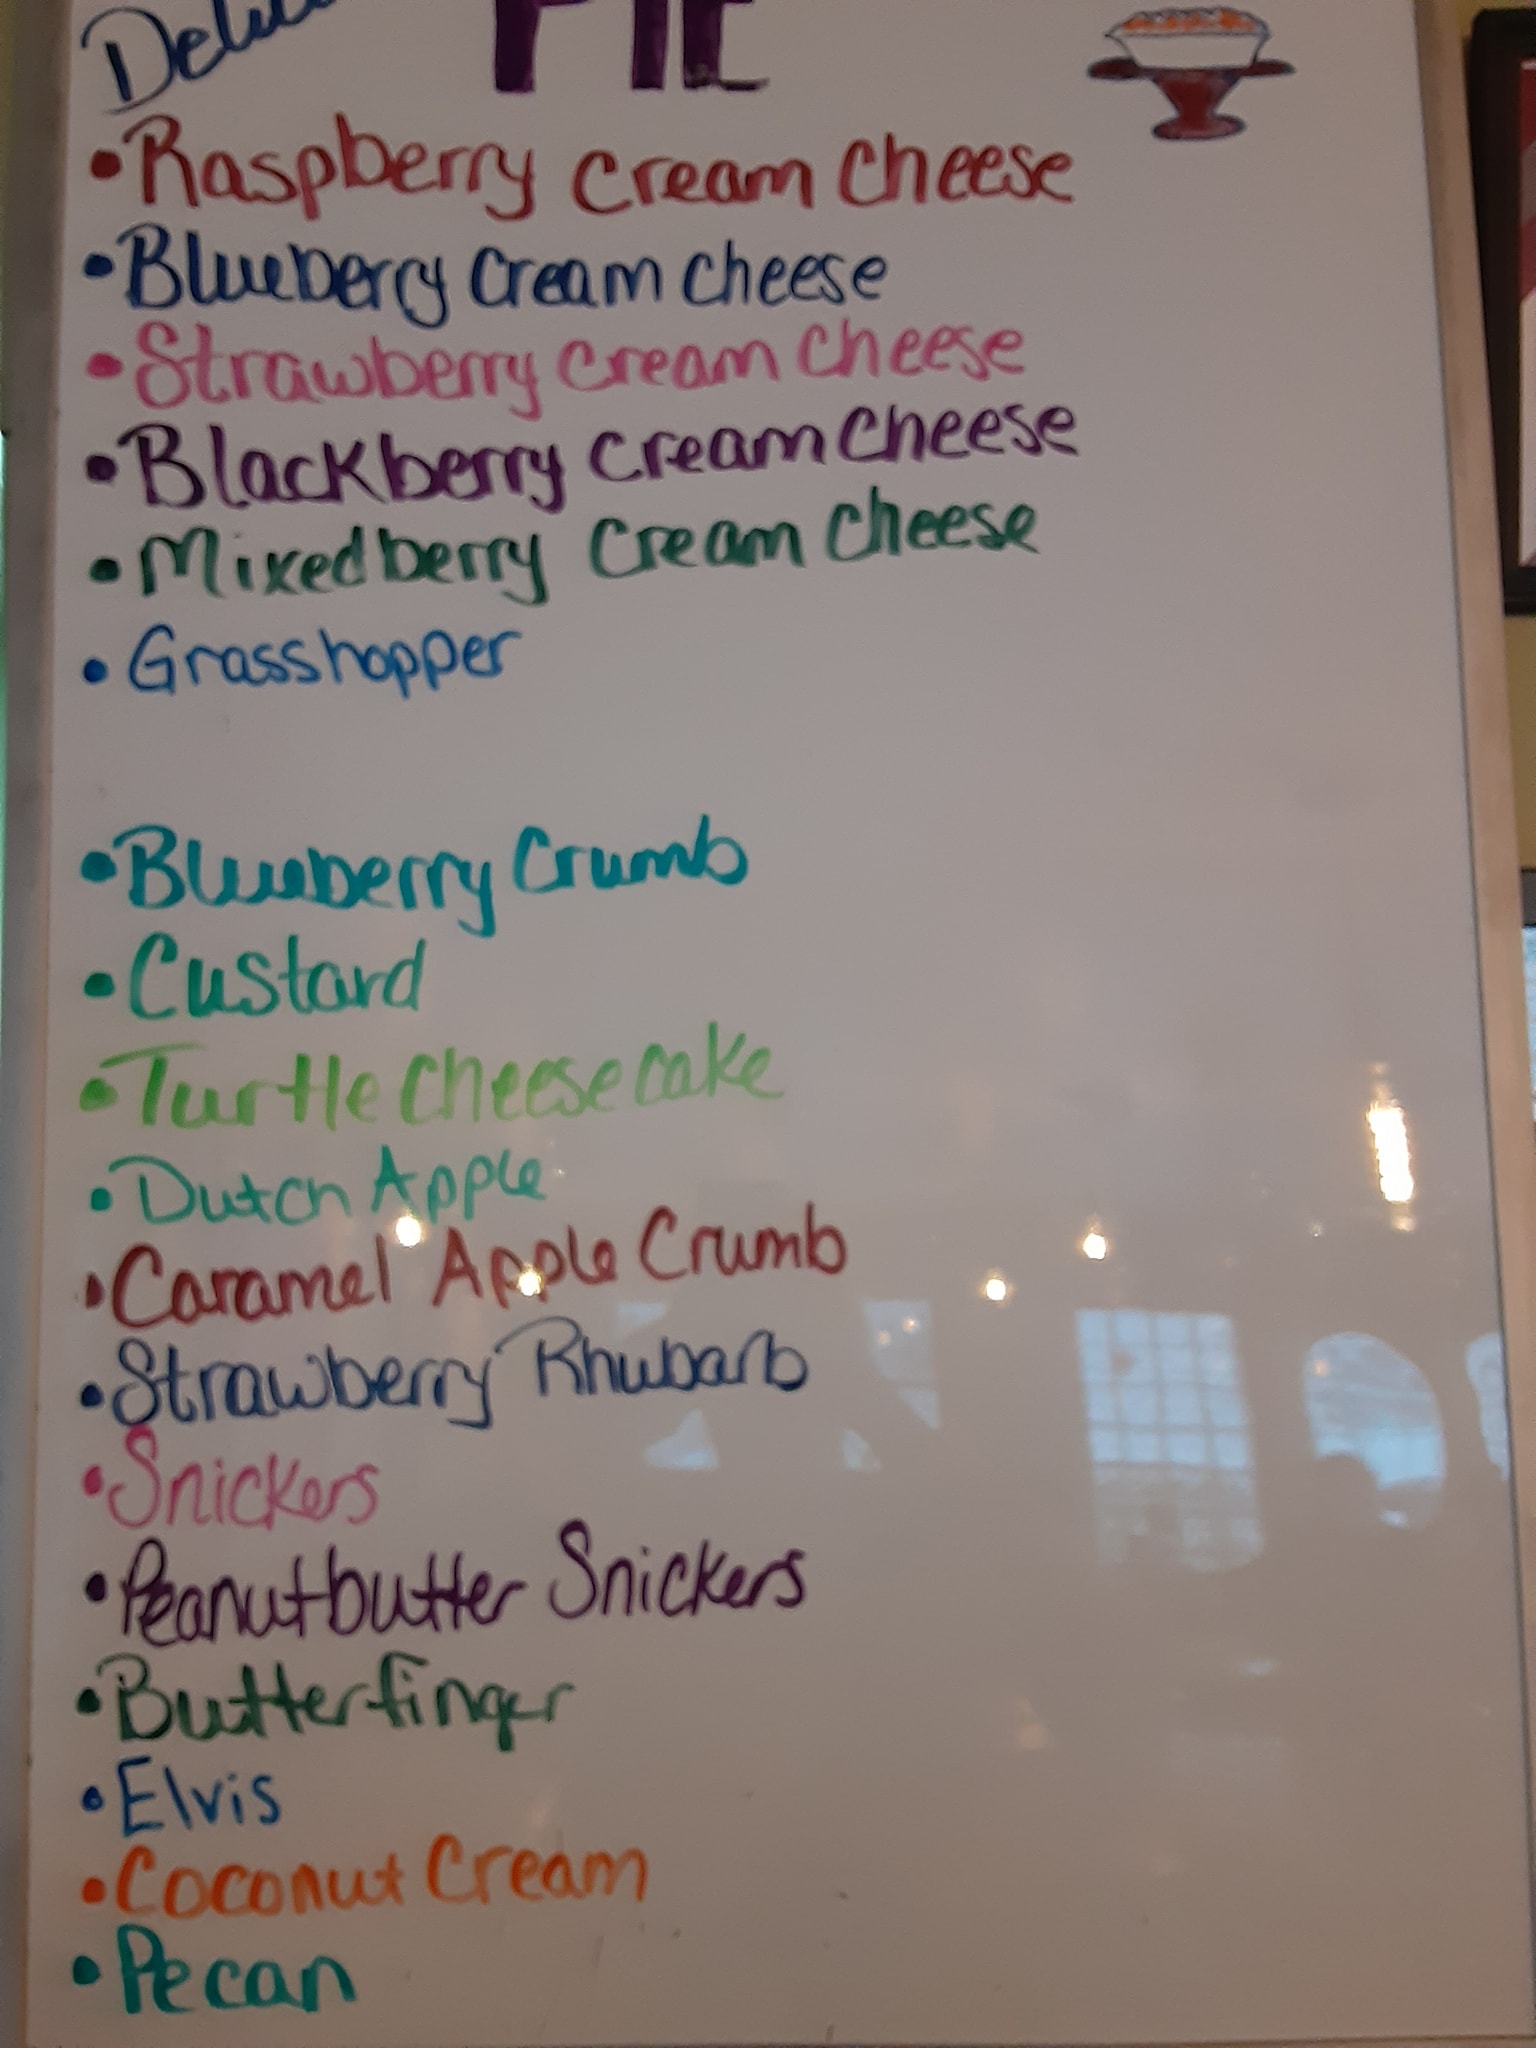 PIE
• Raspberry Cream Cheese
• Blueberry Cream Cheese
• Strawberry Cream Cheese
• Blackberry Cream Cheese
• Mixedberry Cream Cheese
• Grasshopper
• Blueberry Crumb
• Custard
• Turtle Cheesecake
• Dutch Apple
• Caramel Apple Crumb
• Strawberry Rhubarb
• Snickers
• Peanutbutter Snickers
• Butterfinger
• Elvis
• Coconut Cream
• Pecan